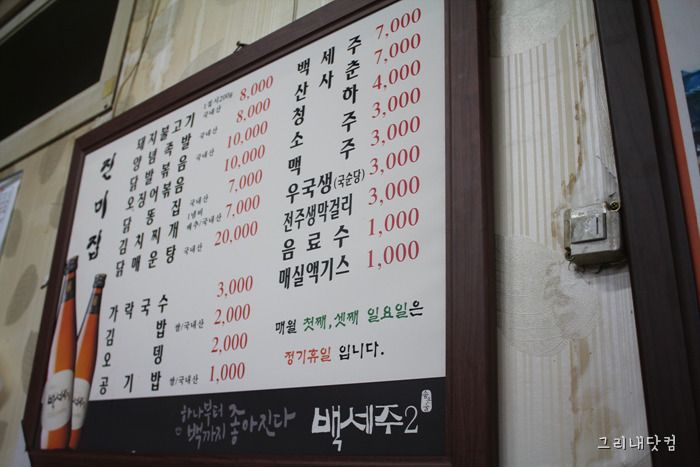 진미집
돼지불고기 1접시200g 국내산 8,000
양념족발 국내산 8,000
닭발볶음 국내산 10,000
오징어볶음 10,000
닭똥집 국내산 7,000
김치찌개 1냄비 배추/국내산 7,000
닭매운탕 국내산 20,000
가락국수 3,000
김밥 쌀/국내산 2,000
오뎅 2,000
공기밥 쌀/국내산 1,000
백세주 7,000
산사춘 7,000
청하 4,000
소주 3,000
맥주 3,000
우국생(국순당) 3,000
전주생막걸리 3,000
음료수 1,000
매실액기스 1,000
매월 첫째,셋째 일요일은
정기휴일 입니다.
하나부터
백까지 좋아진다
백세주2
백세주
그리내닷컴